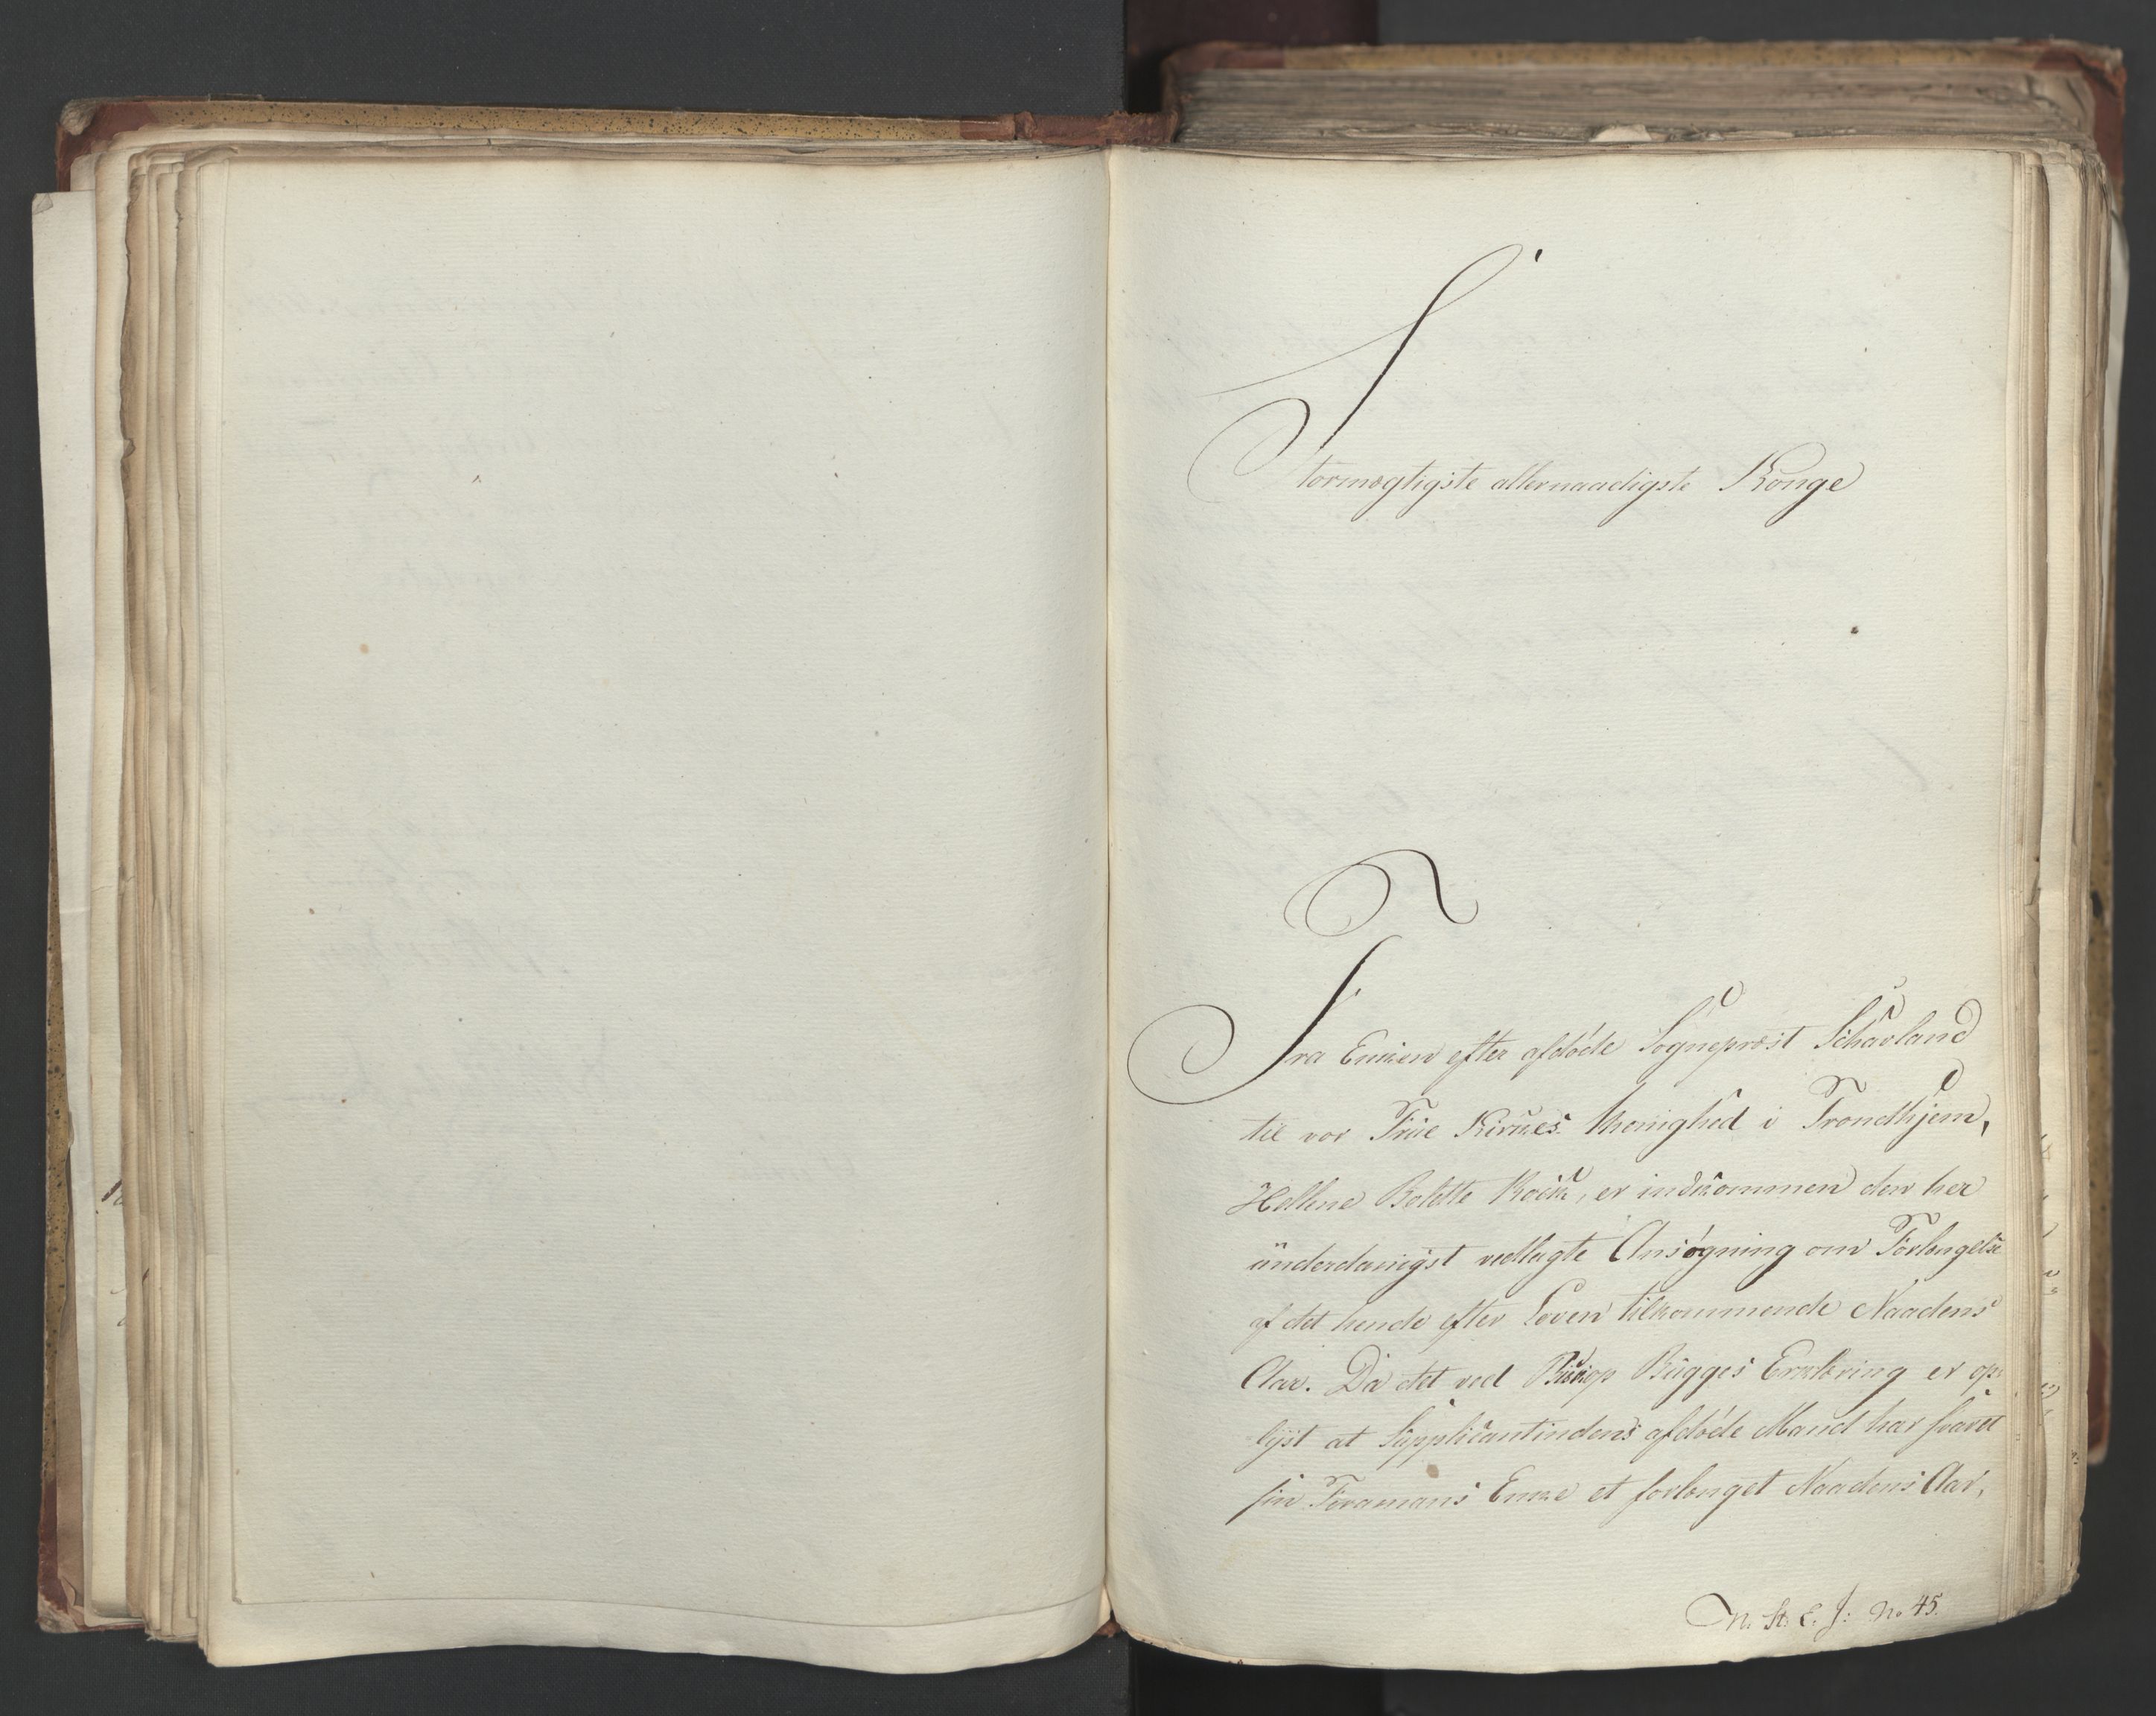 Stormægtigste allernaadigste Konge
Fra Enken efter afdøde Sognepræst Schavland
til vor Frue Kirkes Menighed i Trondhjem,
Hellene Bolette Kock, er indkommen den her
underdanigst vedlagte Ansøgning om Forlængelse
af det hende efter Loven tilkommende Naadens
Aar. Da det ved Biskop Bugges Erklæring er op-
lyst at Supplicantindens afdøde Mand har svaret
sin Formans Enke et forlænget Naadens Aar,
N. St. E. J: No 45.